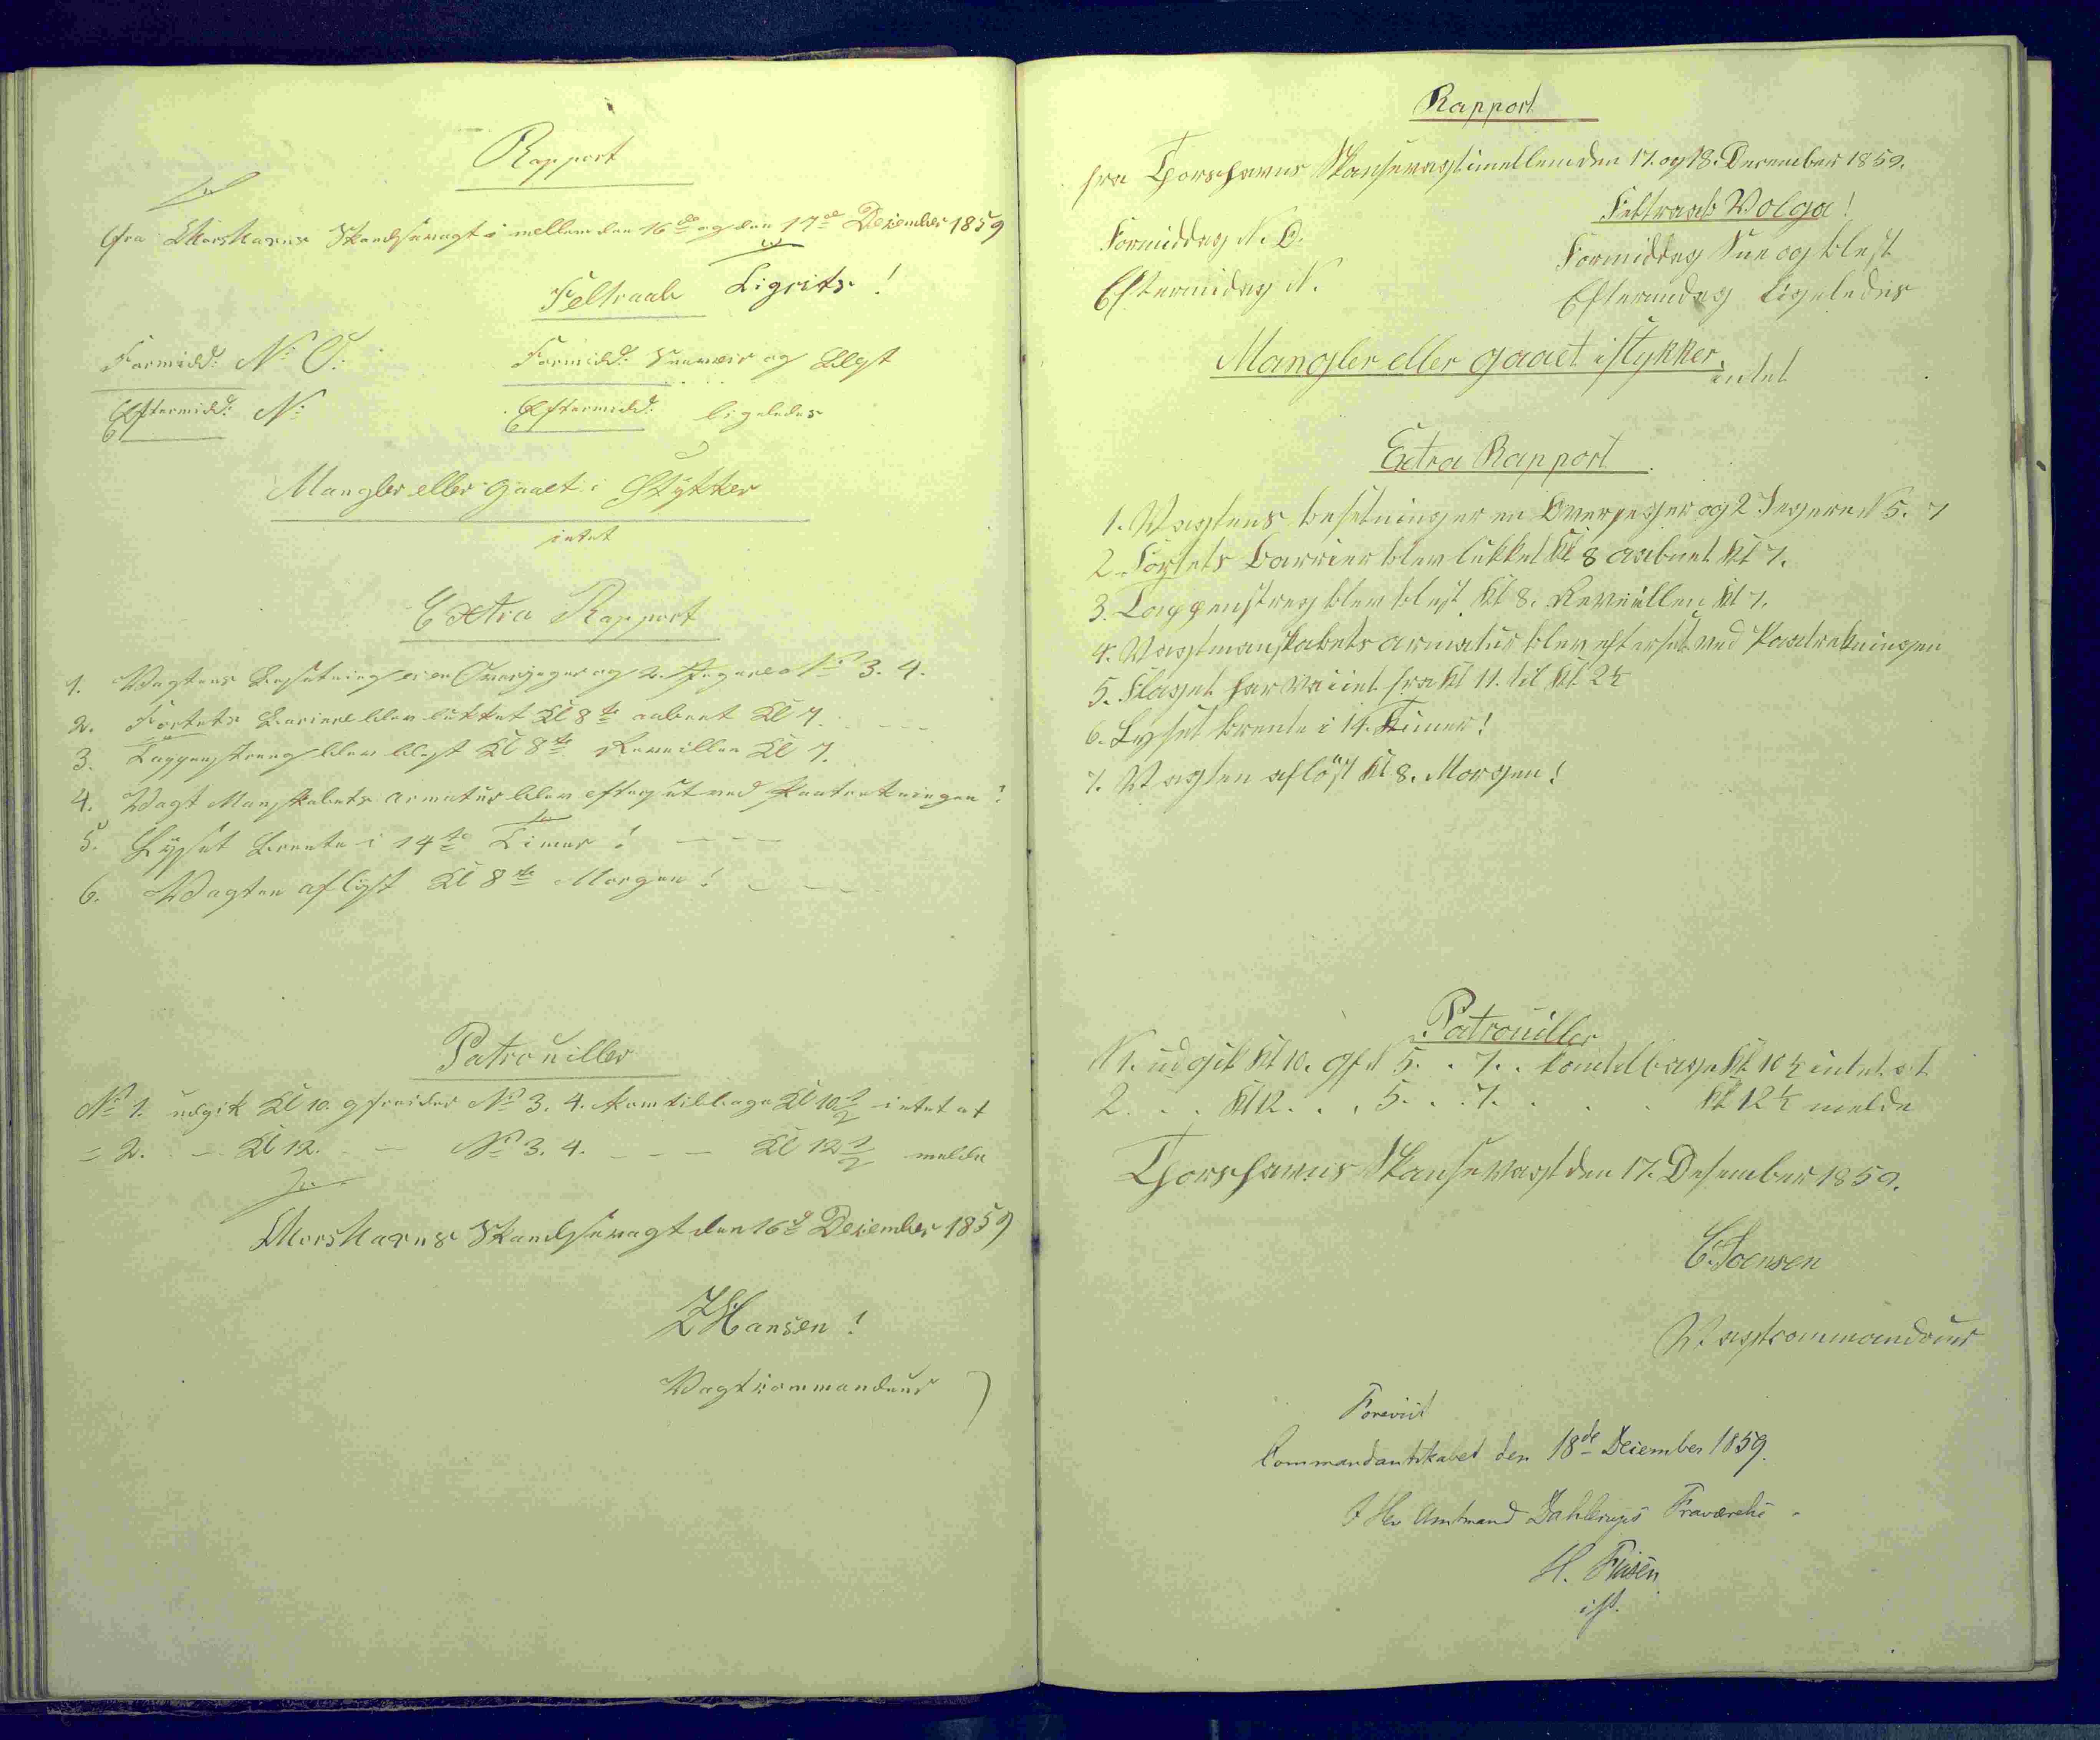 Rapport
fra Thorshavns Skandsevagt i mellem den 16de og den 17de Desember 1859
Feltraab Ligrits!
Formidd: N: O: Formidd: Sneveir og Blest
Eftermidd: N: Eftermidd: ligeledes
Mangler eller gaaet i Stykker
intet
Extra Rapport
1. Vagtens Besetning er en Overjeger og 2. Jegere No 3. 4.
2. Fortets Bariere blev lukket Kl 8te aabent Kl 7.
3. Tappenstreeg blev blest Kl 8te Reveillen Kl 7.
4. Vagt Manskabets armatur blev efterset ved Paatretningen!
5. Lyset brente i 14te Timer!
6. Vagten aflöst Kl 8te Morgen!
Patrouiller
No 1. udgik Kl 10. gfreider No 3. 4. kom tilbage Kl 10 1/2 intet at
= 2. - Kl 12. - No 3. 4. - - - Kl 12 1/2 melde
Thorshavns Skandsevagt den 16d Desember 1859
Hansen!
Vagtcommandeur
Rapport
fra Thorshavns Skansevagt imellem den 17. og 18. December 1859.
Feltraab Volga!
Formiddag N. O. Formiddag Sne og blest
Eftermidag N. Eftermidag Ligeledes
Mangler eller gaaet i stykker. intet
Extra Rapport
1. Vagtens besetning er en Overjeger og 2 Jegere N 5. 7
2. Fortets barrier blev lukket Kl 8 aabnet Kl 7.
3. Tappenstreg blev blest Kl 8. Reveillen Kl 7.
4. Vagtmanskabets armatur blev efterset ved Paatretningen
5. Flaget har vaiiet fra Kl 11. til Kl. 2½
6. Lyset brente i 14. Timer!
7. Vagten aflöst Kl 8. Morgen!
Patrouiller
N 1. udgik Kl 10. gf N 5. . 7. . kom tilbage Kl 10½ intet at
2. . . Kl 12. . . 5. . . 7. . . . Kl 12½ melde
Thorshavns Skansevagt den 17. Desember 1859.
C. Joensen
Vagtcommandeur
Forevist
Commandantskabet den 18de December 1859.
I Hr Amtmand Dahlerups Fraværelse
H.